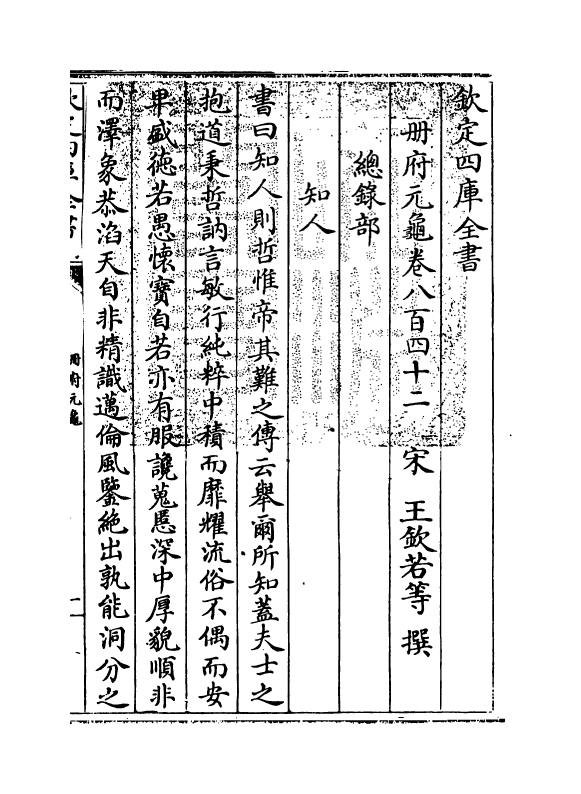 欽定四庫全書
冊府元龜卷八百四十二　宋　王欽若等　撰
總錄部
知人
書曰知人則哲惟帝其難之傳云舉爾所知蓋夫士之
抱道秉哲訥言敏行純粹中積而靡耀流俗不偶而安
卑盛德若愚懷寶自若亦有服讒蒐慝深中厚貌順非
而澤象恭滔天自非精識邁倫風鑒絶出孰能洞分之
冊府元龜